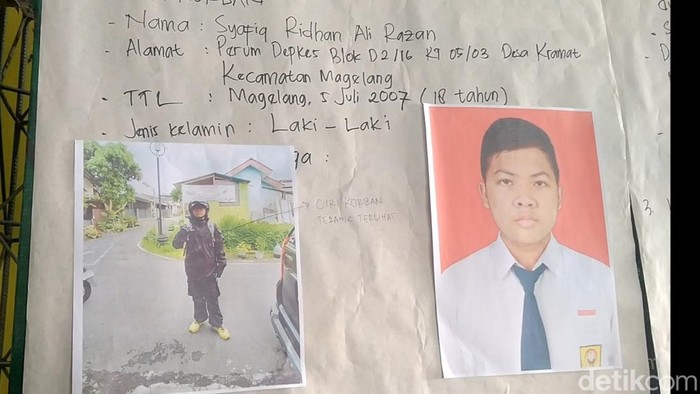 - Nama : Syafiq Ridhan Ali Razan
- Alamat : Perum Depkes Blok D2/16 RT 05/03 Desa Kramat
Kecamatan Magelang
- TTL : Magelang, 5 Juli 2007 (18 tahun)
- Jenis kelamin : Laki - Laki
:
CIRI KORBAN
TERAKIR TERLIHAT
3.
detikcom